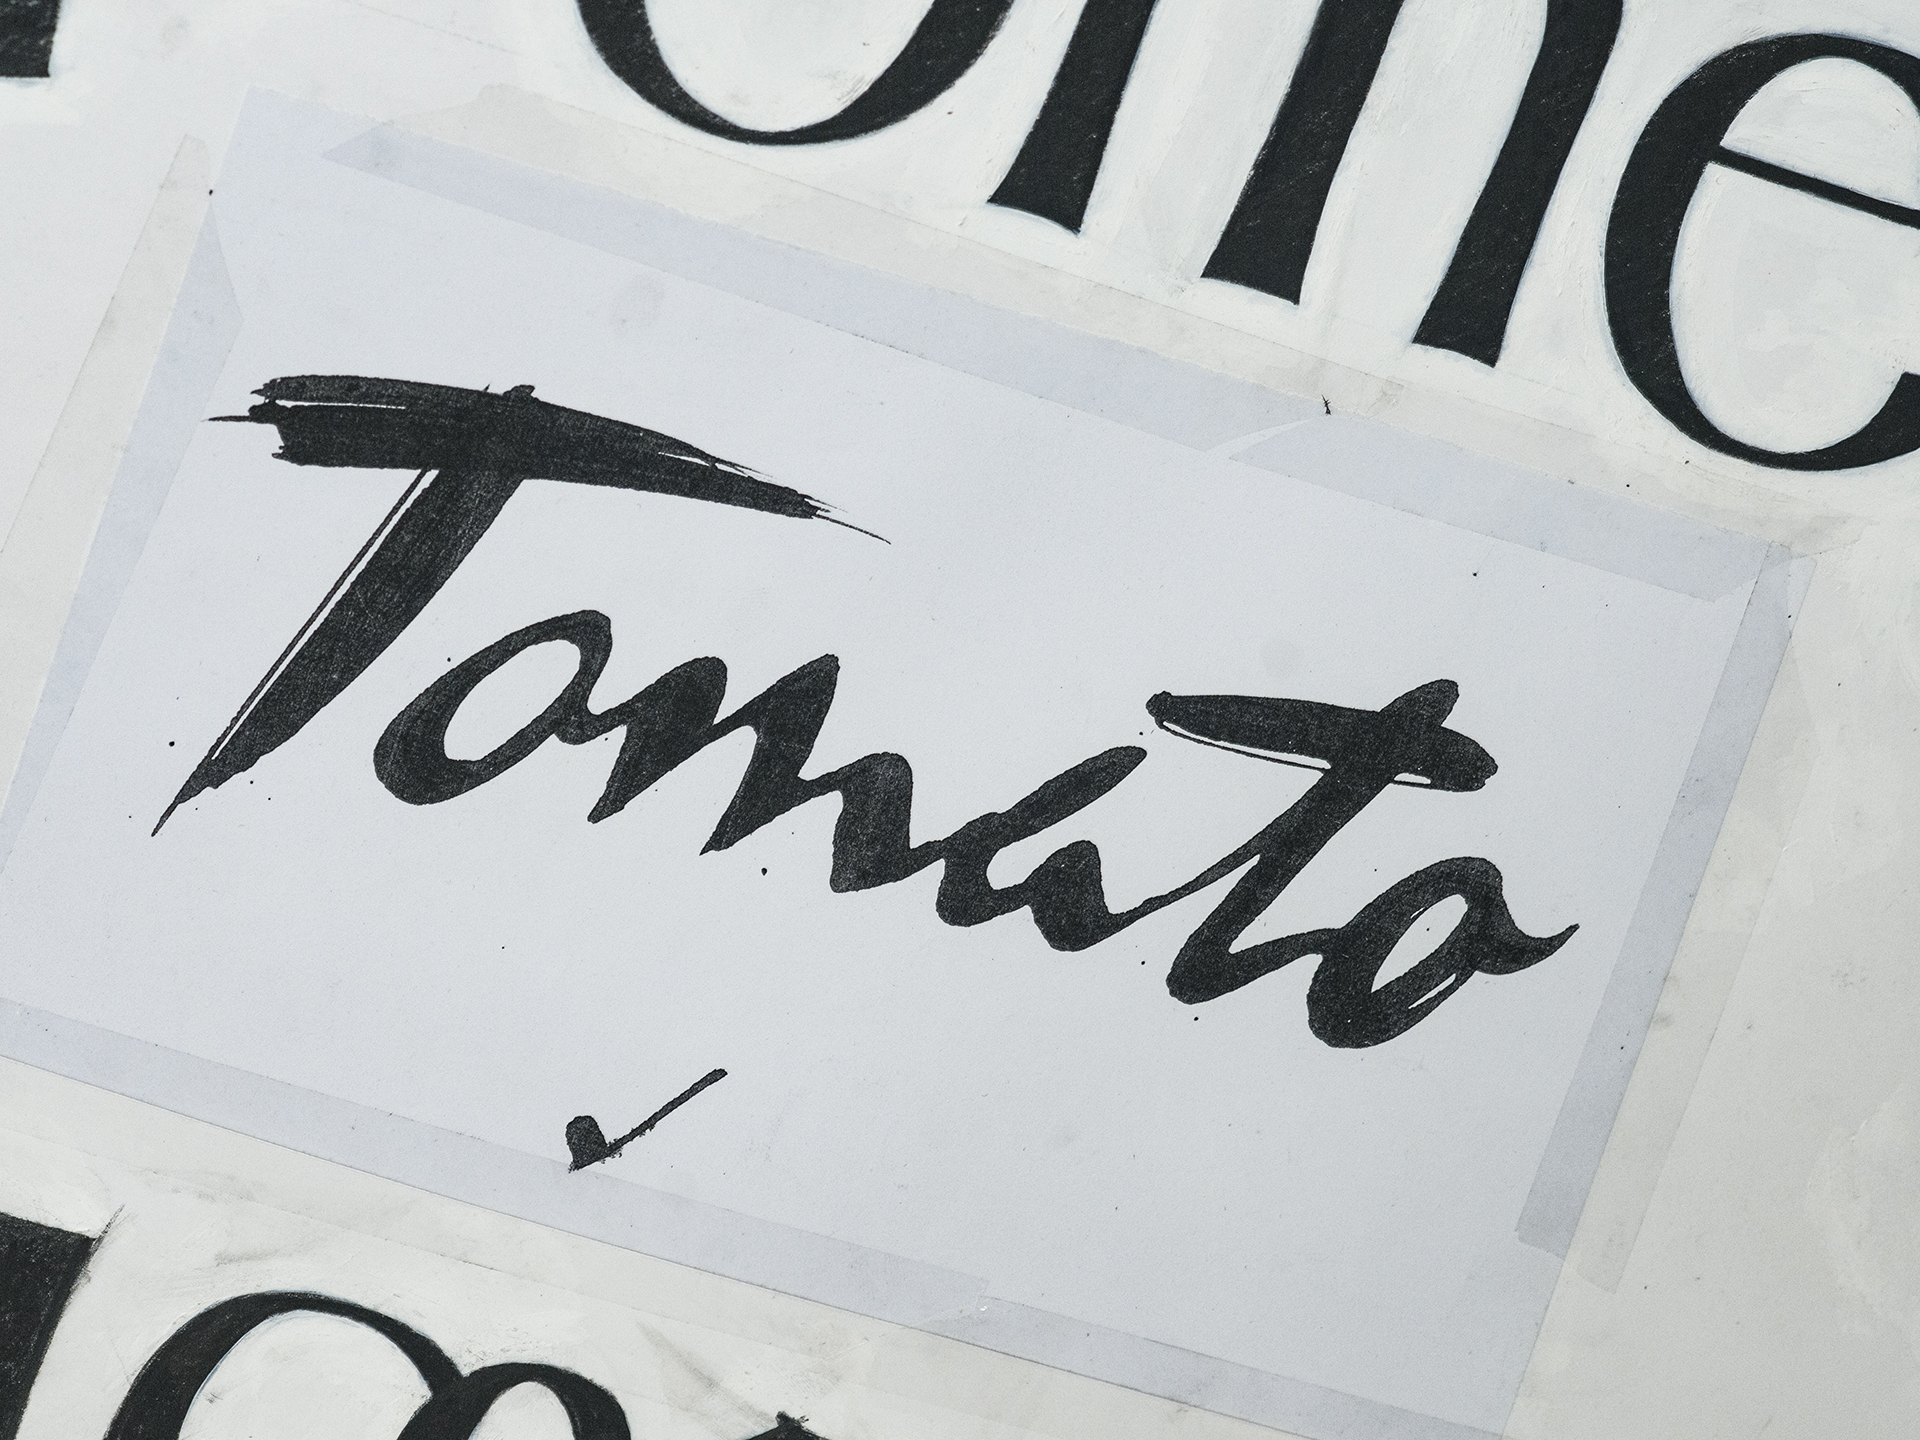 ome
Tomato